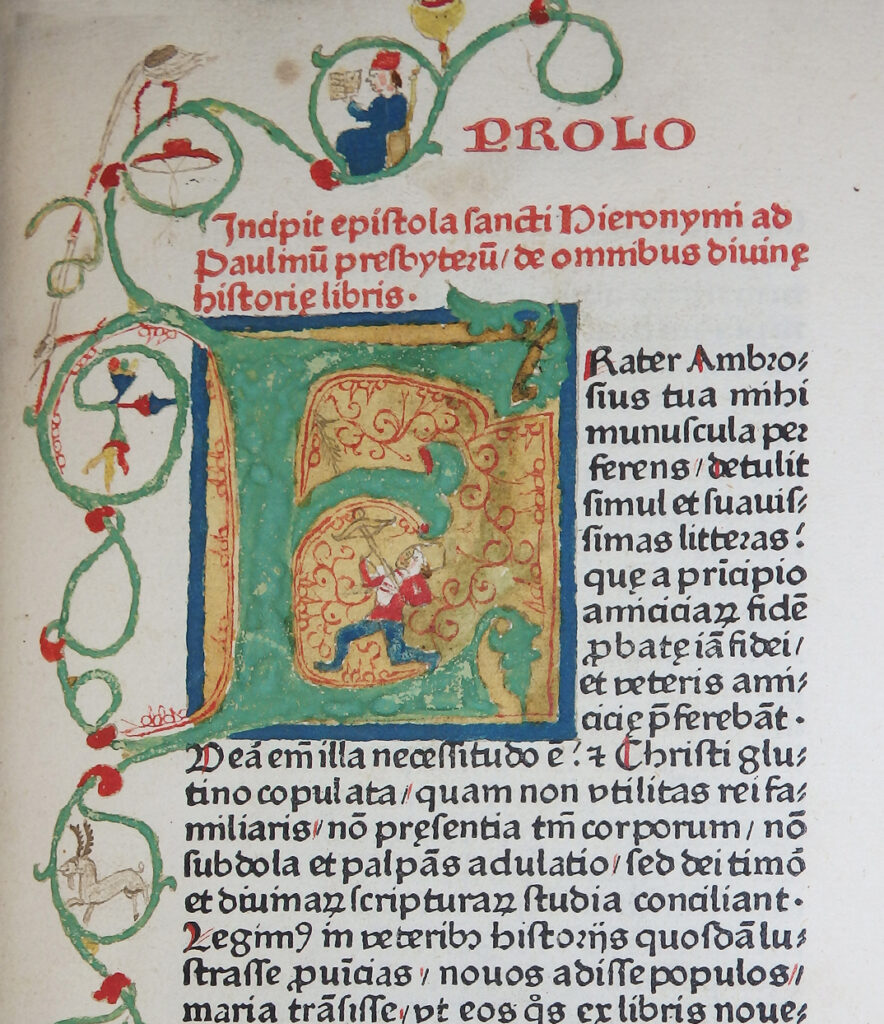 PROLO
Incipit epistola sancti Hieronymi ad
Paulinū presbyterū/ de omnibus diuinę
historię libris.
Rater Ambro⸗
sius tua mihi
munuscula per
ferens/ detulit
simul et suauis⸗
simas litteras:
quę a prīcipio
amiciciaꝝ fidē
ꝓbatę iā fidei/
et veteris ami⸗
cicię p̄ferebāt.
Veā em̄ illa necessitudo ē: ⁊ Christi glu⸗
tino copulata/ quam non vtilitas rei fa⸗
miliaris/ nō pręsentia tm̄ corporum/ nō
subdola et palpās adulatio/ sed dei timō
et diuinaꝝ scripturaꝝ studia conciliant.
Legimꝰ in veteribꝫ historijs quosdā lu⸗
strasse ꝓuīcias/ nouos adisse populos/
maria trāsisse/ vt eos q̊s ex libris noue⸗